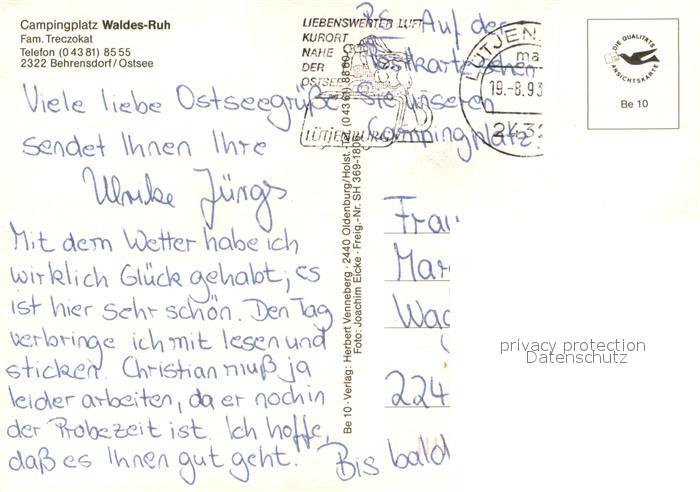 Campingplatz Waldes-Ruh
Fam. Treczokat
Telefon (0 43 81) 85 55
2322 Behrensdorf / Ostsee
Viele liebe Ostseegrüße
sendet Ihnen Ihre
Ulrike Jürgs
Mit dem Wetter habe ich
wirklich Glück gehabt, es
ist hier sehr schön. Den Tag
verbringe ich mit lesen und
sticken. Christian muß ja
leider arbeiten, da er noch in
der Probezeit ist. Ich hoffe,
daß es Ihnen gut geht. Bis bald
PS. Auf der
Postkarte sehen
Sie unseren
Campingplatz
LIEBENSWERTER LUFT
KURORT
NAHE
DER
OSTSEE
LÜTJENBURG
19.-8.93
Be 10 · Verlag: Herbert Venneberg · 2440 Oldenburg/Holst.
Foto: Joachim Eicke · Freig.-Nr. SH 369-180
DIE QUALITÄTS
ANSICHTSKARTE
Be 10
Frau
Mar
224
privacy protection
Datenschutz